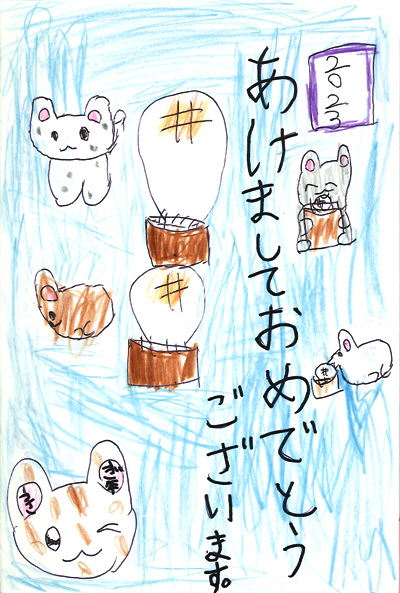 2023
あけましておめでとう
ございます。
うさぎ